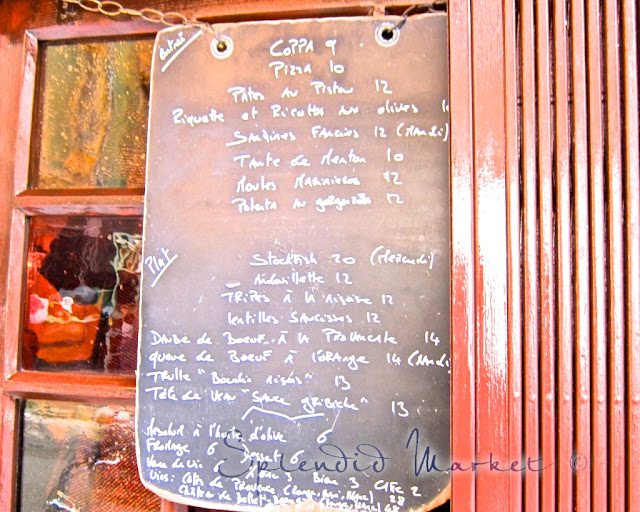 Entrées
COPPA 9
PIZZA 10
PATES AU PISTOU 12
Riquette et Ricotta aux olives
SARDINES FARCIES 12 (MARDI)
TARTE de Menton 10
MOULES MARINIERES 12
Polenta au gorgonzola 12
Plat
STOCKFISH 20 (MERCREDI)
Andouillette 12
TRIPES à la niçoise 12
lentilles SAUCISSES 12
DAUBE de BOEUF à la PROVENCALE 14
queue de BOEUF à l'ORANGE 14 (MARDI)
TRULLE "Boudin niçois" 13
Tête de VEAU "SAUCE gribiche" 13
à l'huile d'olive 6
Fromage 6 Dessert 6
Verre de Vin 3 Bière 3 CAFE 2
Vins: Côtes de Provence (Rouge, Rosé, Blanc) 28
Château de Bellet
Splendid Market ©